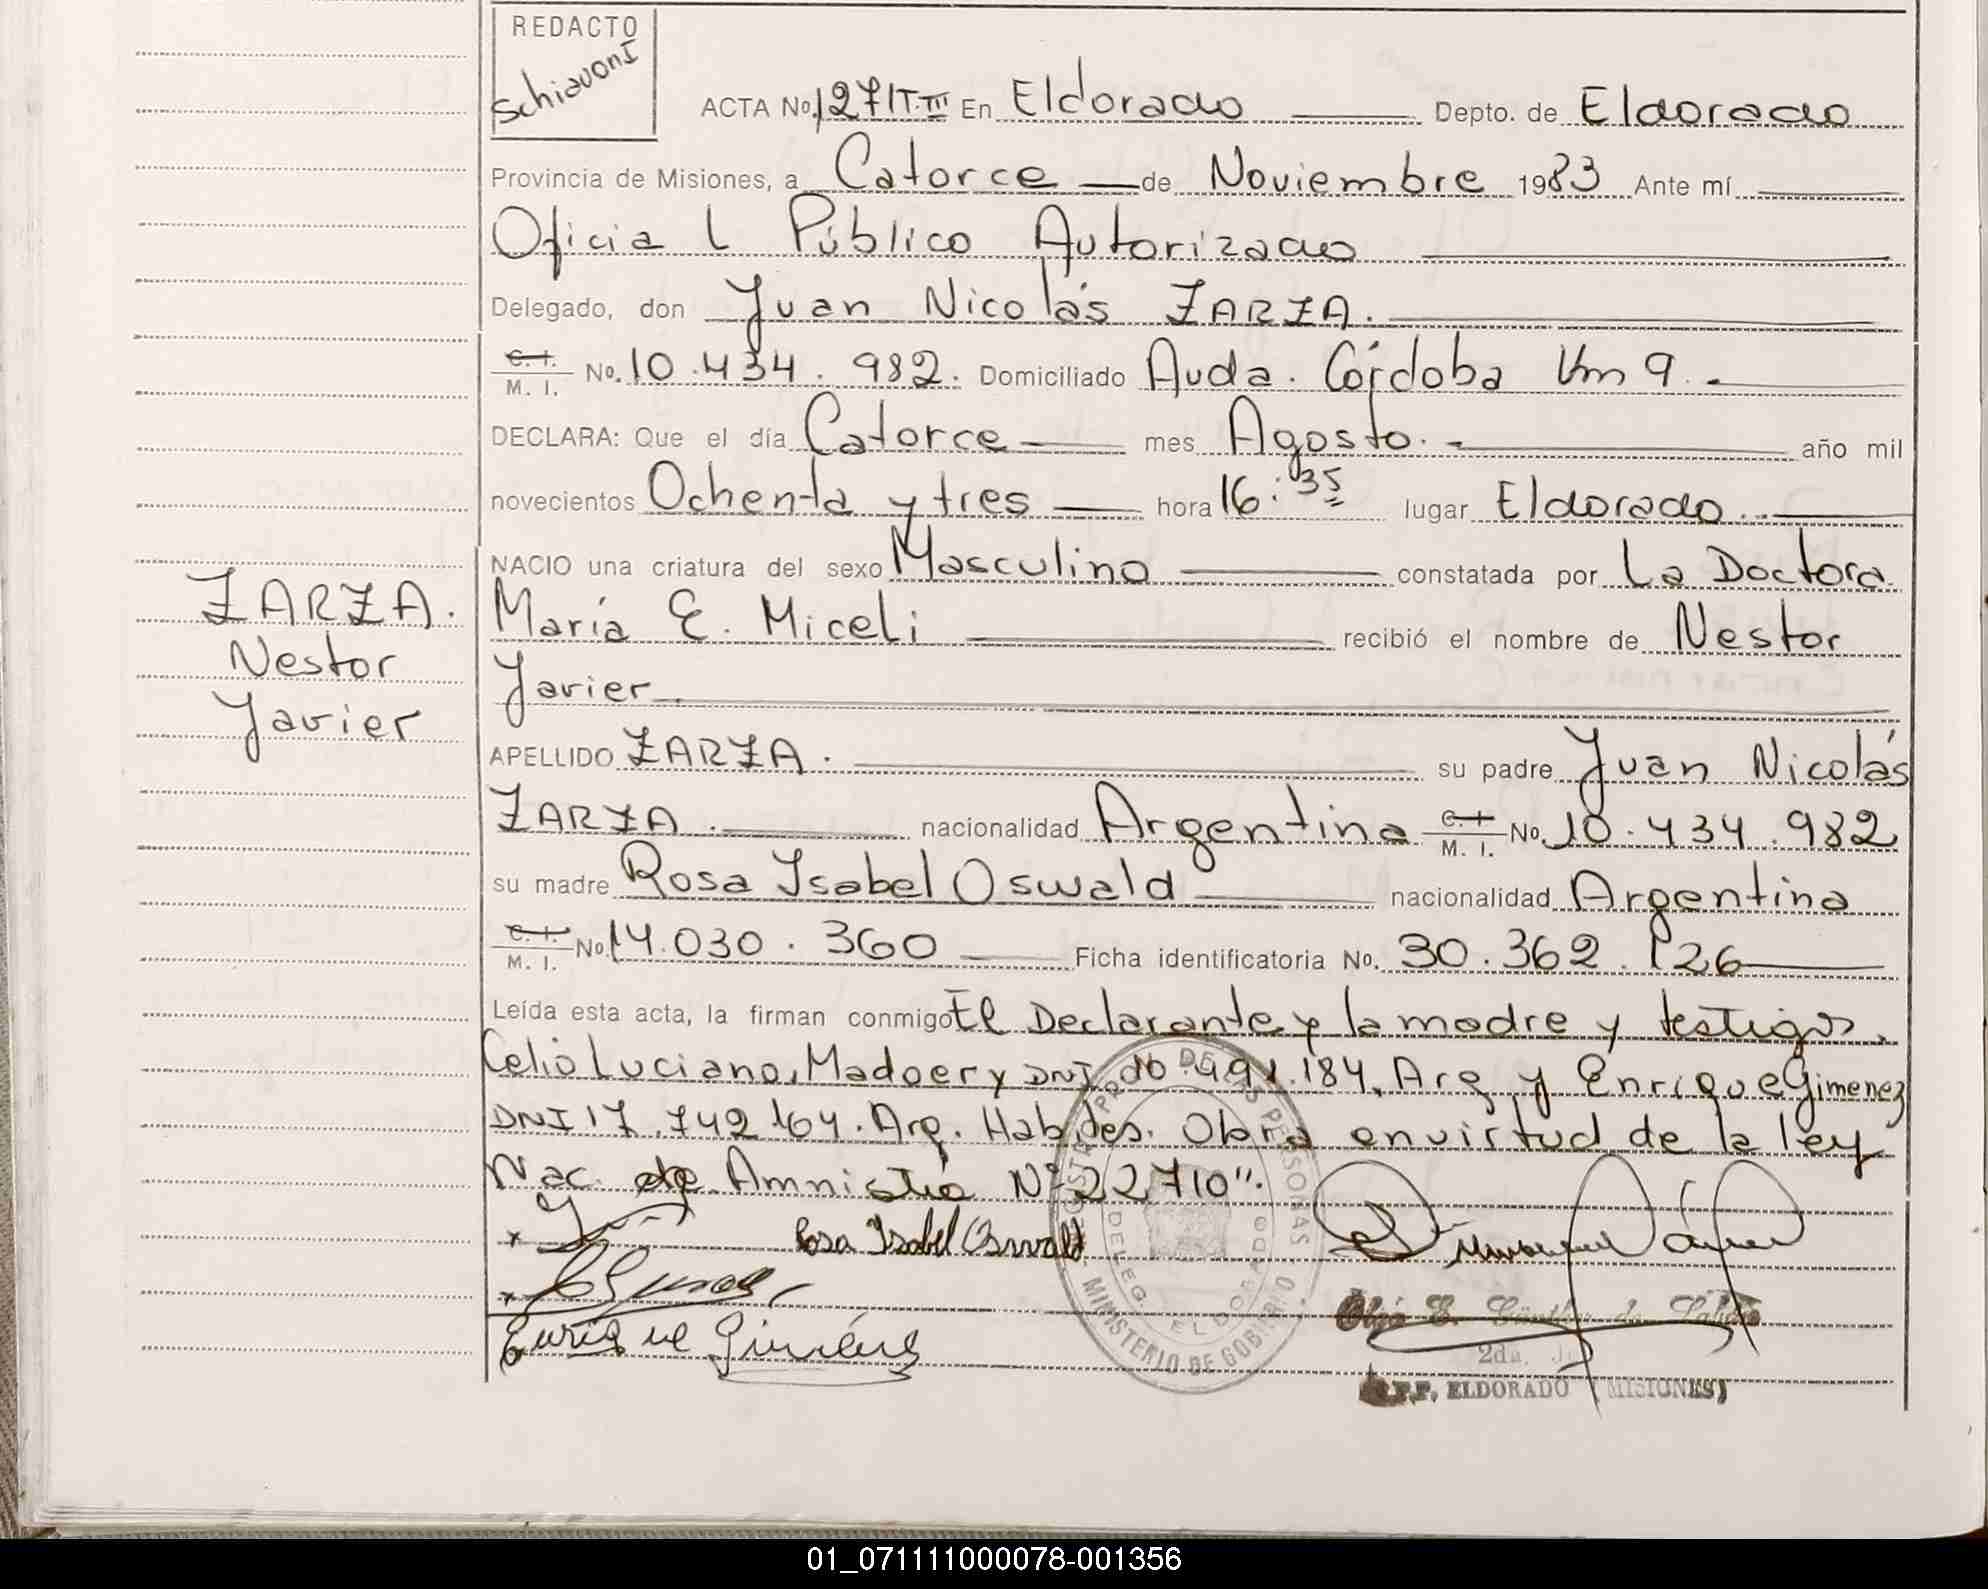 REDACTO
Schiavoni
ACTA No. 1271T.III En Eldorado Depto. de Eldorado
Provincia de Misiones, a Catorce de Noviembre 1983 Ante mí
Oficial Público Autorizado
Delegado, don Juan Nicolás ZARZA.
C. I. M. I. No. 10.434.982. Domiciliado Avda. Córdoba Km 9.
DECLARA: Que el día Catorce mes Agosto. año mil
novecientos Ochenta y tres hora 16:35 lugar Eldorado.
NACIO una criatura del sexo Masculino constatada por La Doctora
ZARZA. María E. Miceli recibió el nombre de Nestor
Nestor
Javier
Javier
APELLIDO ZARZA. su padre Juan Nicolás
ZARZA. nacionalidad Argentina C. I. M. I. No. 10.434.982
su madre Rosa Isabel Oswald nacionalidad Argentina
C. I. M. I. No. 14.030.360 Ficha identificatoria No. 30.362.126
Leída esta acta, la firman conmigo El Declarante y la madre y testigos,
Celio Luciano, Madoery DNI. 10.491.184. Arg y Enrique Gimenez
DNI 17.742.164. Arg. Habides. Obra en virtud de la ley
Nac. de Amnistia Nº 22710".
Rosa Isabel Oswald
Enrique Giménez
REGISTRO PROV. DE LAS PERSONAS
DELEG. ELDORADO
MINISTERIO DE GOBIERNO
Olga E.
2da.
R.P.P. ELDORADO (MISIONES)
01_071111000078-001356